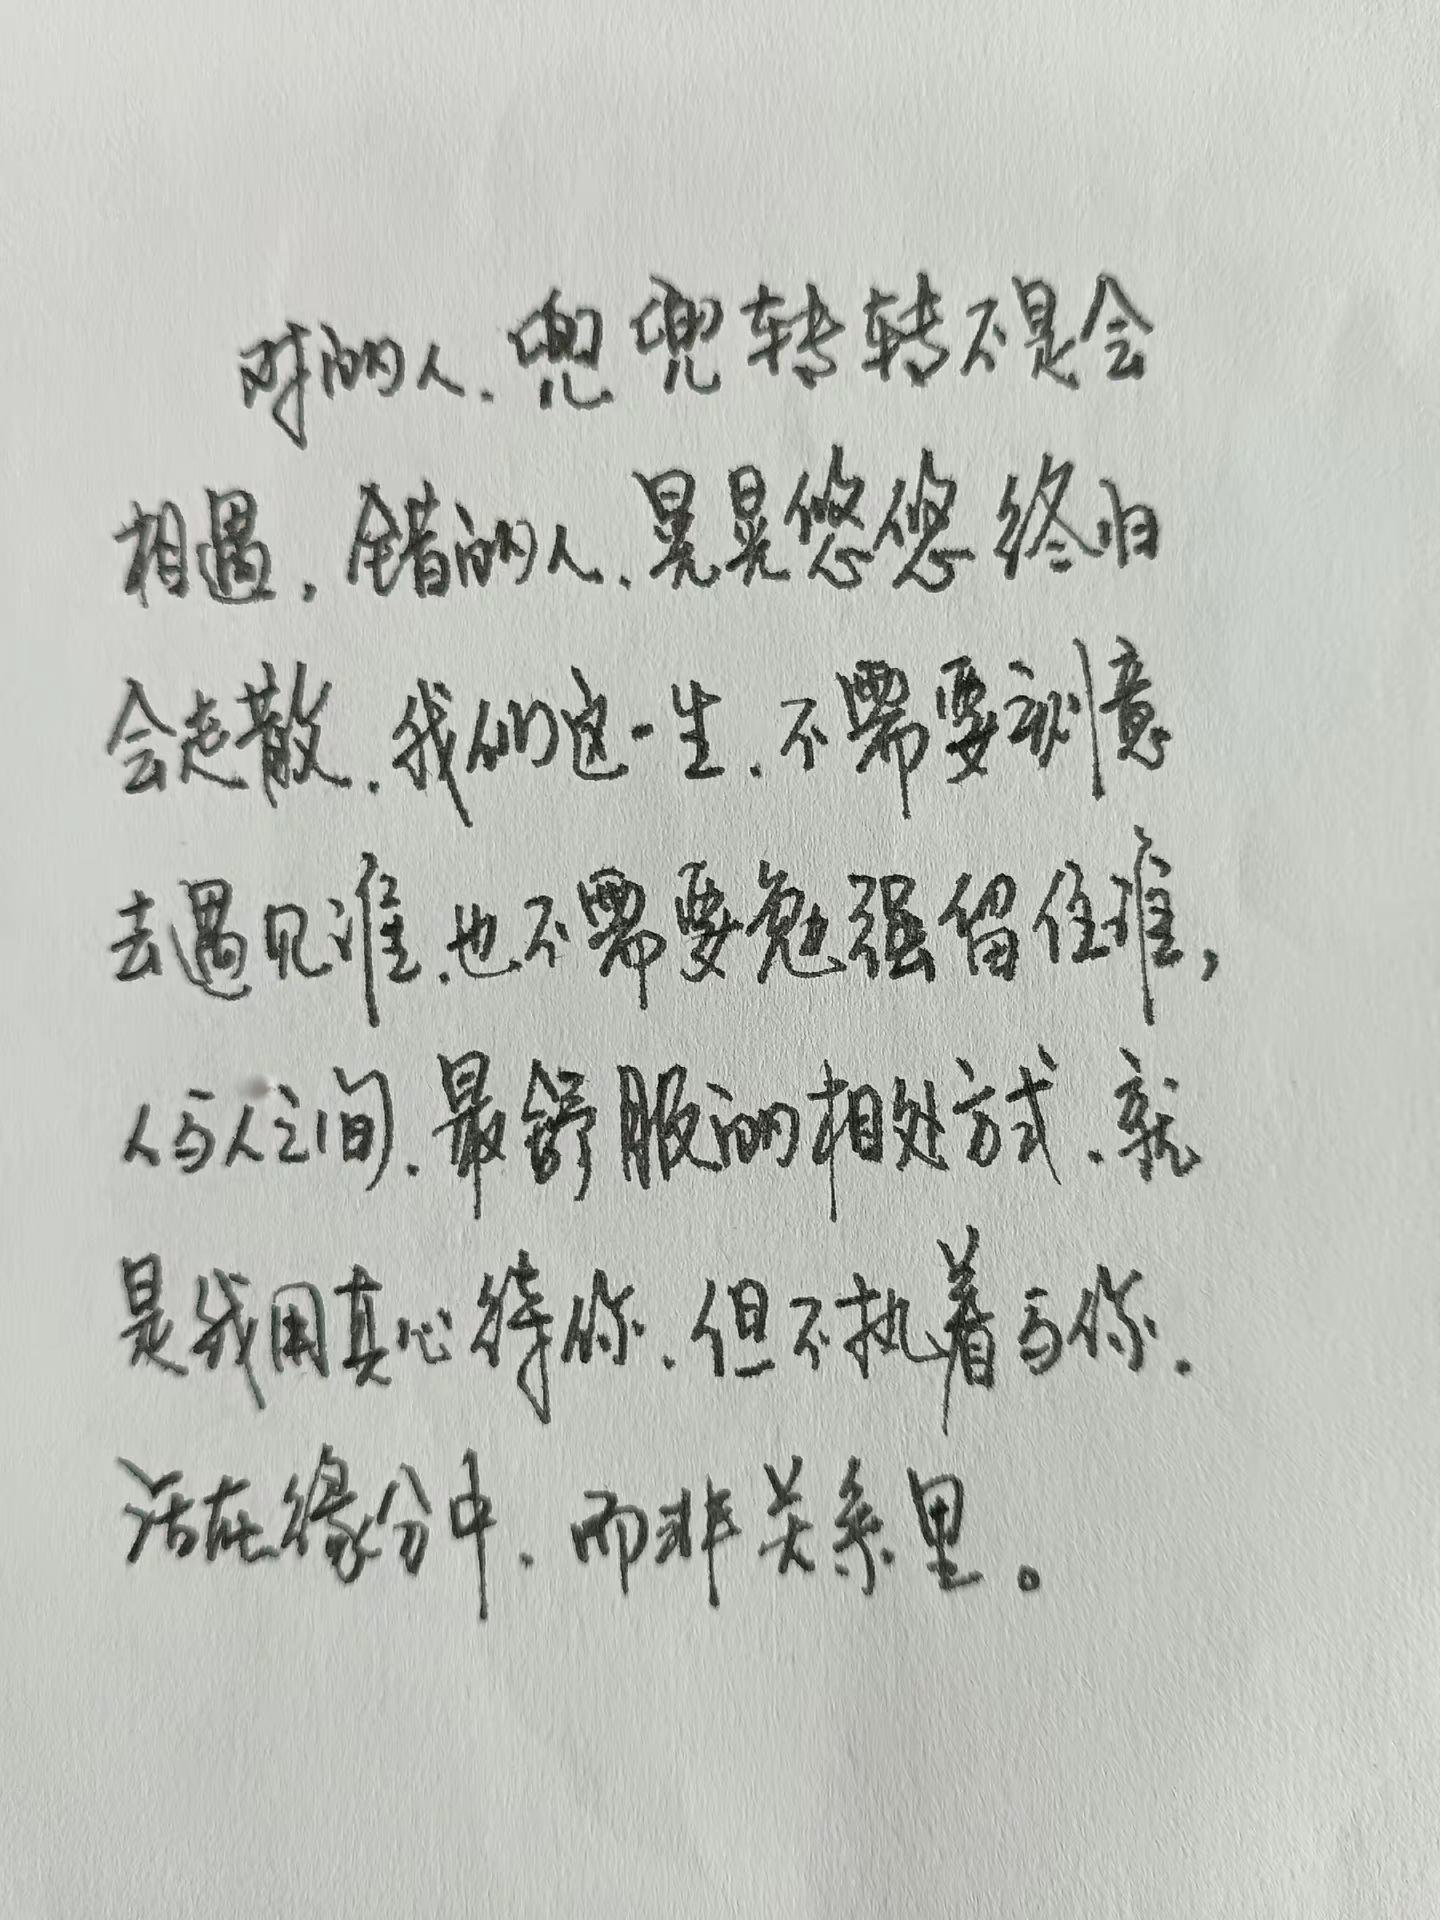 对的人、兜兜转转不是会
相遇，错的人、晃晃悠悠终归
会走散，我们这一生，不需要刻意
去遇见谁，也不需要勉强留住谁，
人与人之间，最舒服的相处方式，就
是我用真心待你，但不执着与你，
活在缘分中，而非关系里。